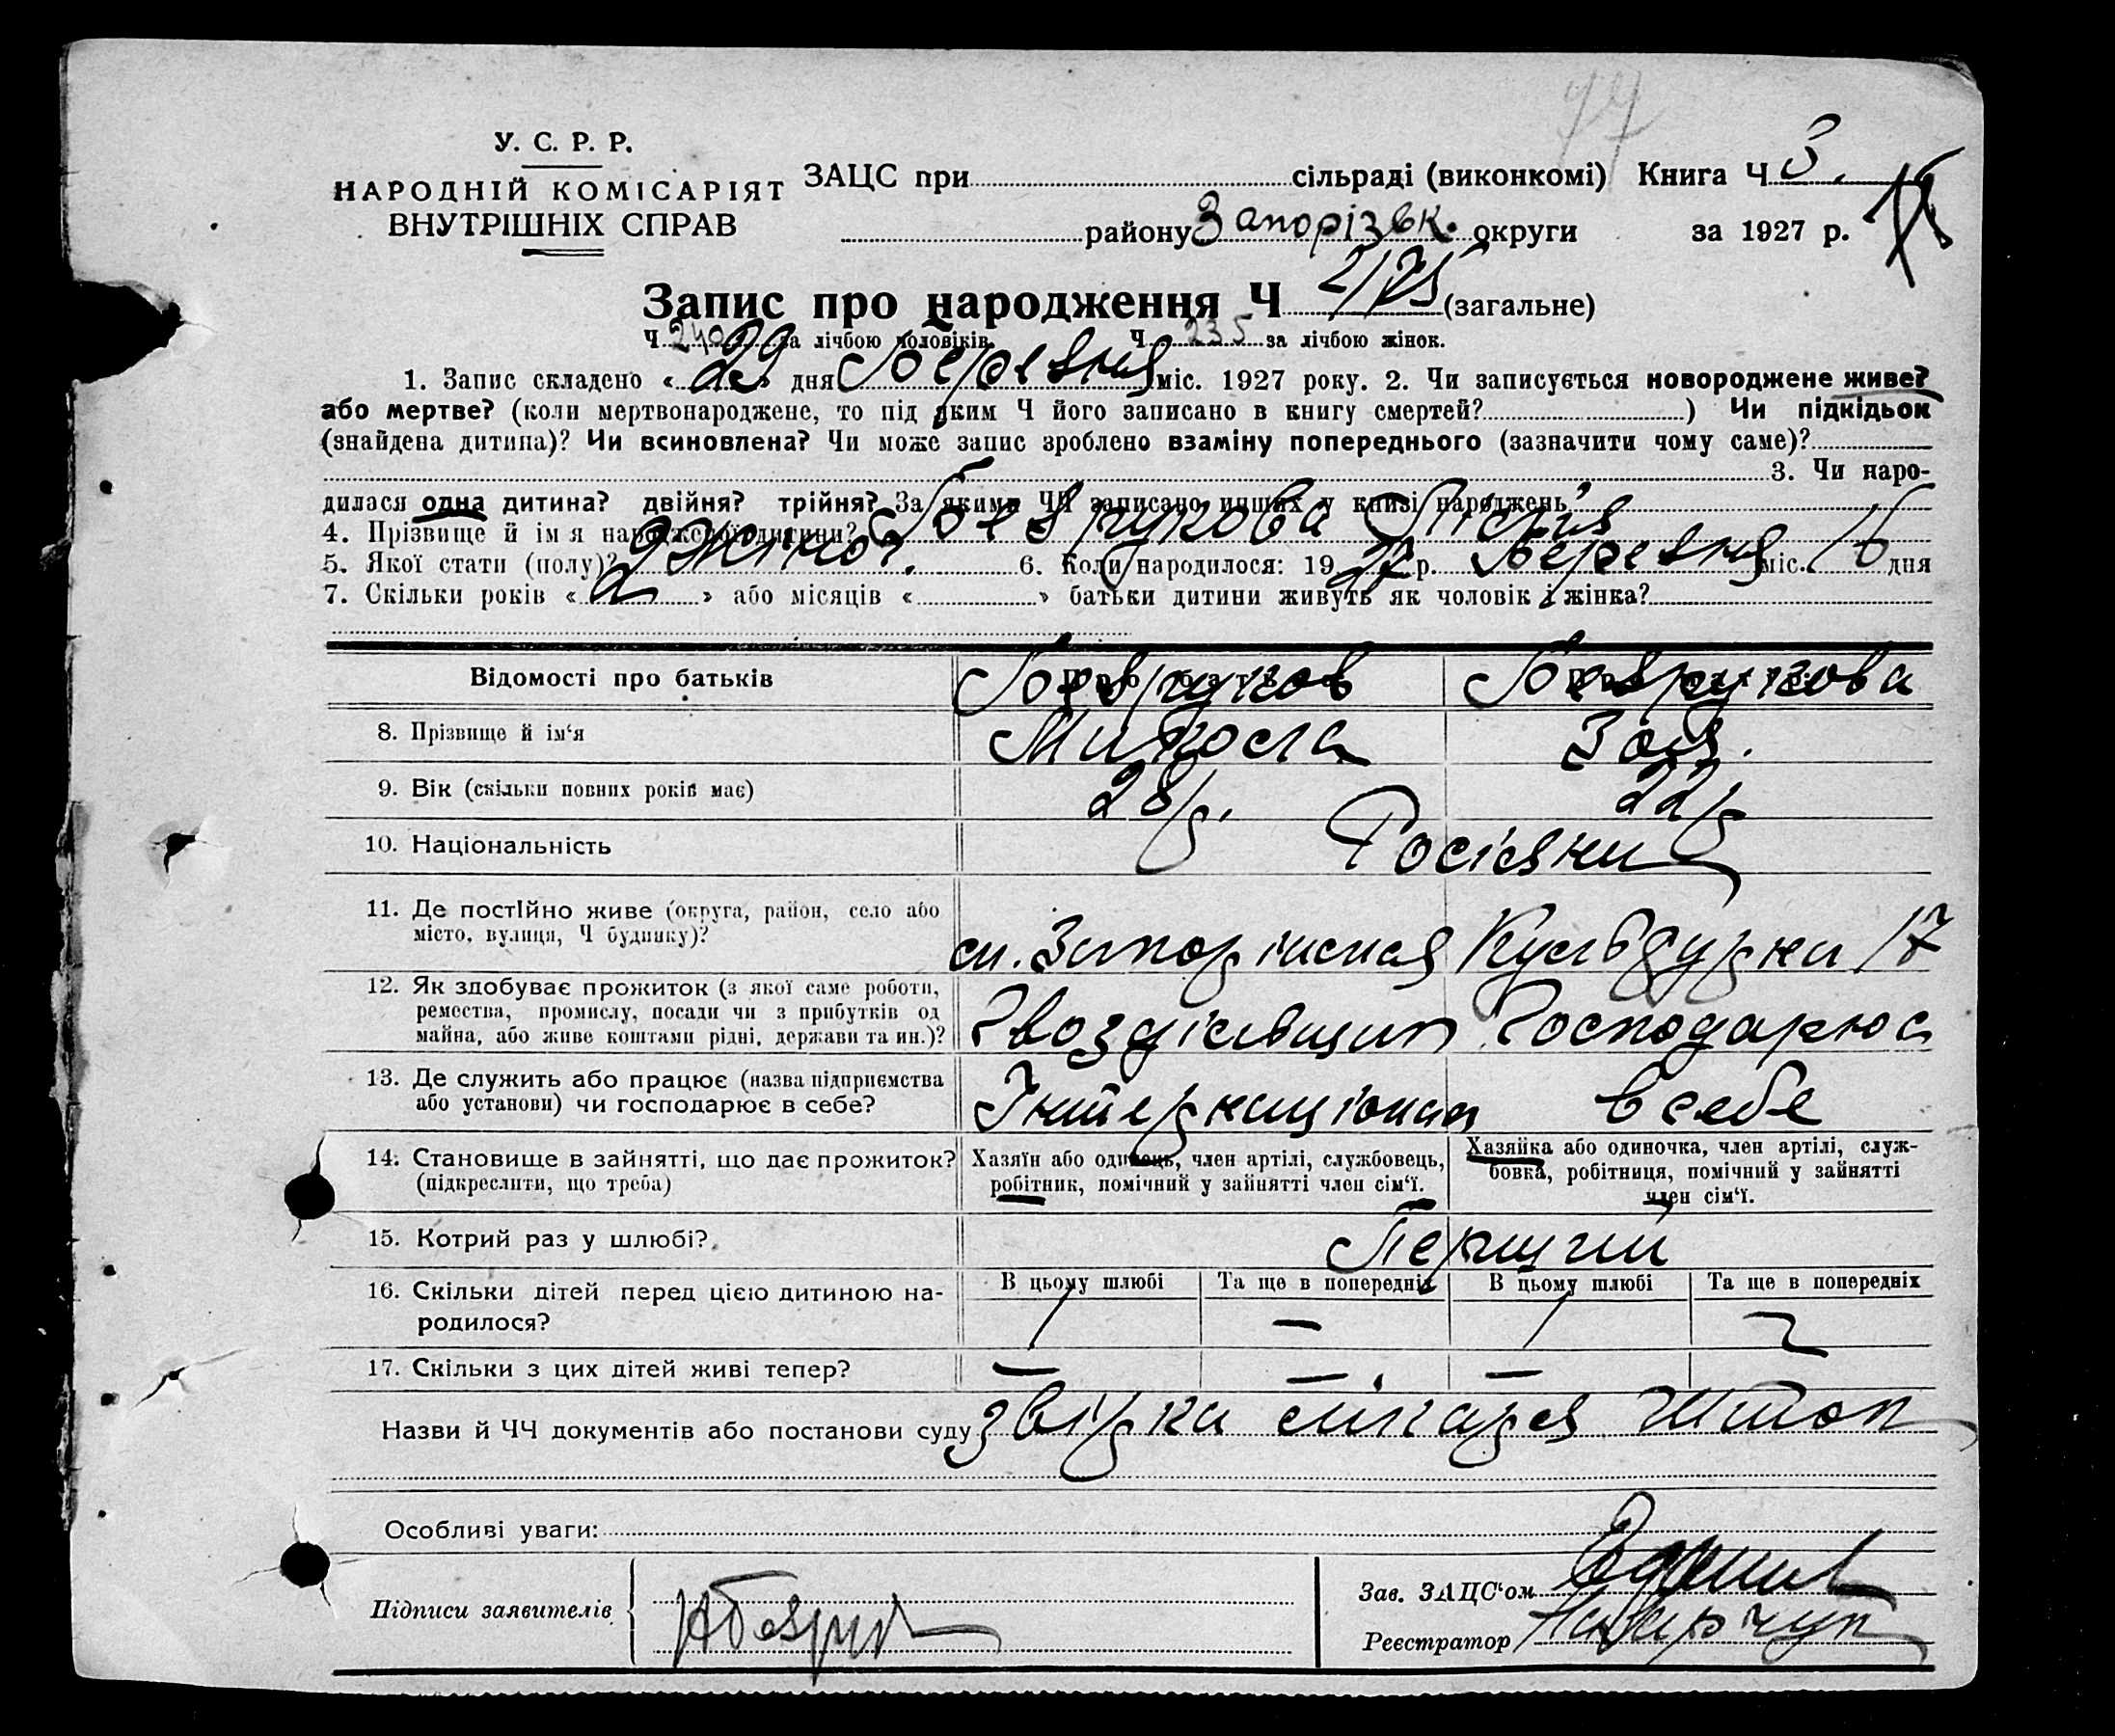 77
У. С. Р. Р.
НАРОДНІЙ КОМІСАРІЯТ
ВНУТРІШНІХ СПРАВ
ЗАЦС при сільраді (виконкомі) Книга Ч 3.
району Запорізьк. округи за 1927 р.
Запис про народження Ч (загальне)
Ч 240 за лічбою чоловіків. Ч 235 за лічбою жінок.
1. Запис складено « 29 » дня Березня міс. 1927 року. 2. Чи записується новороджене живе?
або мертве? (коли мертвонароджене, то під яким Ч його записано в книгу смертей? ) Чи підкідьок
(знайдена дитина)? Чи всиновлена? Чи може запис зроблено взаміну попереднього (зазначити чому саме)?
3. Чи наро-
дилася одна дитина? двійня? трійня? За якими ЧЧ записано инших у книзі народжень
4. Прізвище й ім'я народженої дитини?
5. Якої стати (полу)? Жіноч. 6. Коли народилося: 19 27 р. Березня міс. 16 дня
7. Скільки років « 2 » або місяців « » батьки дитини живуть як чоловік і жінка?
Відомості про батьків
8. Прізвище й ім'я Микола Зоя.
9. Вік (скільки повних років має) 28/р. 22/р
10. Національність Росіяни
11. Де постійно живе (округа, район, село або
місто, вулиця, Ч будинку)? 17
12. Як здобуває прожиток (з якої саме роботи,
ремества, промислу, посади чи з прибутків од
майна, або живе коштами рідні, держави та ин.)? Гвоздільщик Господарює
13. Де служить або працює (назва підприємства
або установи) чи господарює в себе? Інтернаціонал в себе
14. Становище в зайнятті, що дає прожиток?
(підкреслити, що треба)
Хазяїн або одинець, член артілі, службовець,
робітник, помічний у зайнятті член сім'ї.
Хазяйка або одиночка, член артілі, служ-
бовка, робітниця, помічний у зайнятті
член сім'ї.
15. Котрий раз у шлюбі? Перший
16. Скільки дітей перед цією дитиною на-
родилося?
В цьому шлюбі Та ще в попередніх В цьому шлюбі Та ще в попередніх
1 — 1 —
17. Скільки з цих дітей живі тепер? — — —
Назви й ЧЧ документів або постанови суду звірка лікаря
Особливі уваги:
Підписи заявителів
Зав. ЗАЦС'ом
Реєстратор